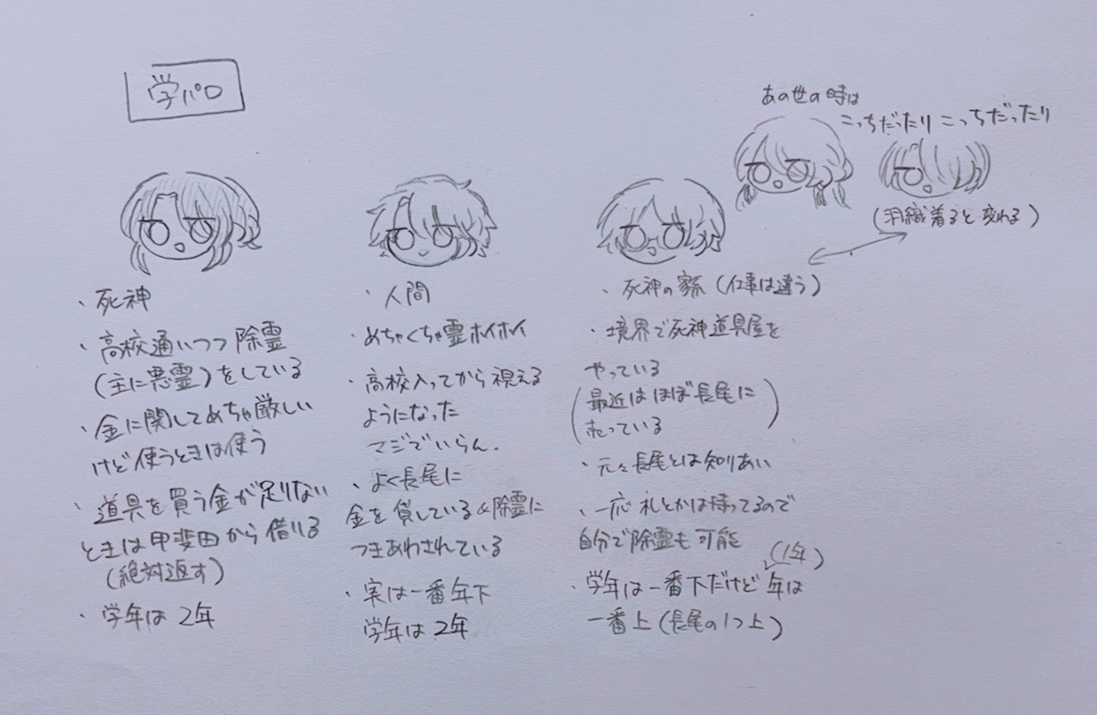 学パロ
・死神
・高校通いつつ除霊
(主に悪霊)をしている
・金に関してめちゃ厳しい
けど使うときは使う
・道具を買う金が足りない
ときは甲斐田から借りる
(絶対返す)
・学年は2年
・人間
・めちゃくちゃ霊ホイホイ
・高校入ってから視える
ようになった
マジでいらん.
・よく長尾に
金を貸している&除霊に
つきあわされている
・実は一番年下
学年は2年
あの世の時は
こっちだったり こっちだったり
(羽織着ると変わる)
・死神の家系(仕事は違う)
・境界で死神道具屋を
やっている
(最近はほぼ長尾に
売っている)
・元々長尾とは知りあい
・一応札とかは持ってるので
自分で除霊も可能
(1年)
・学年は一番下だけど年は
一番上(長尾の1つ上)